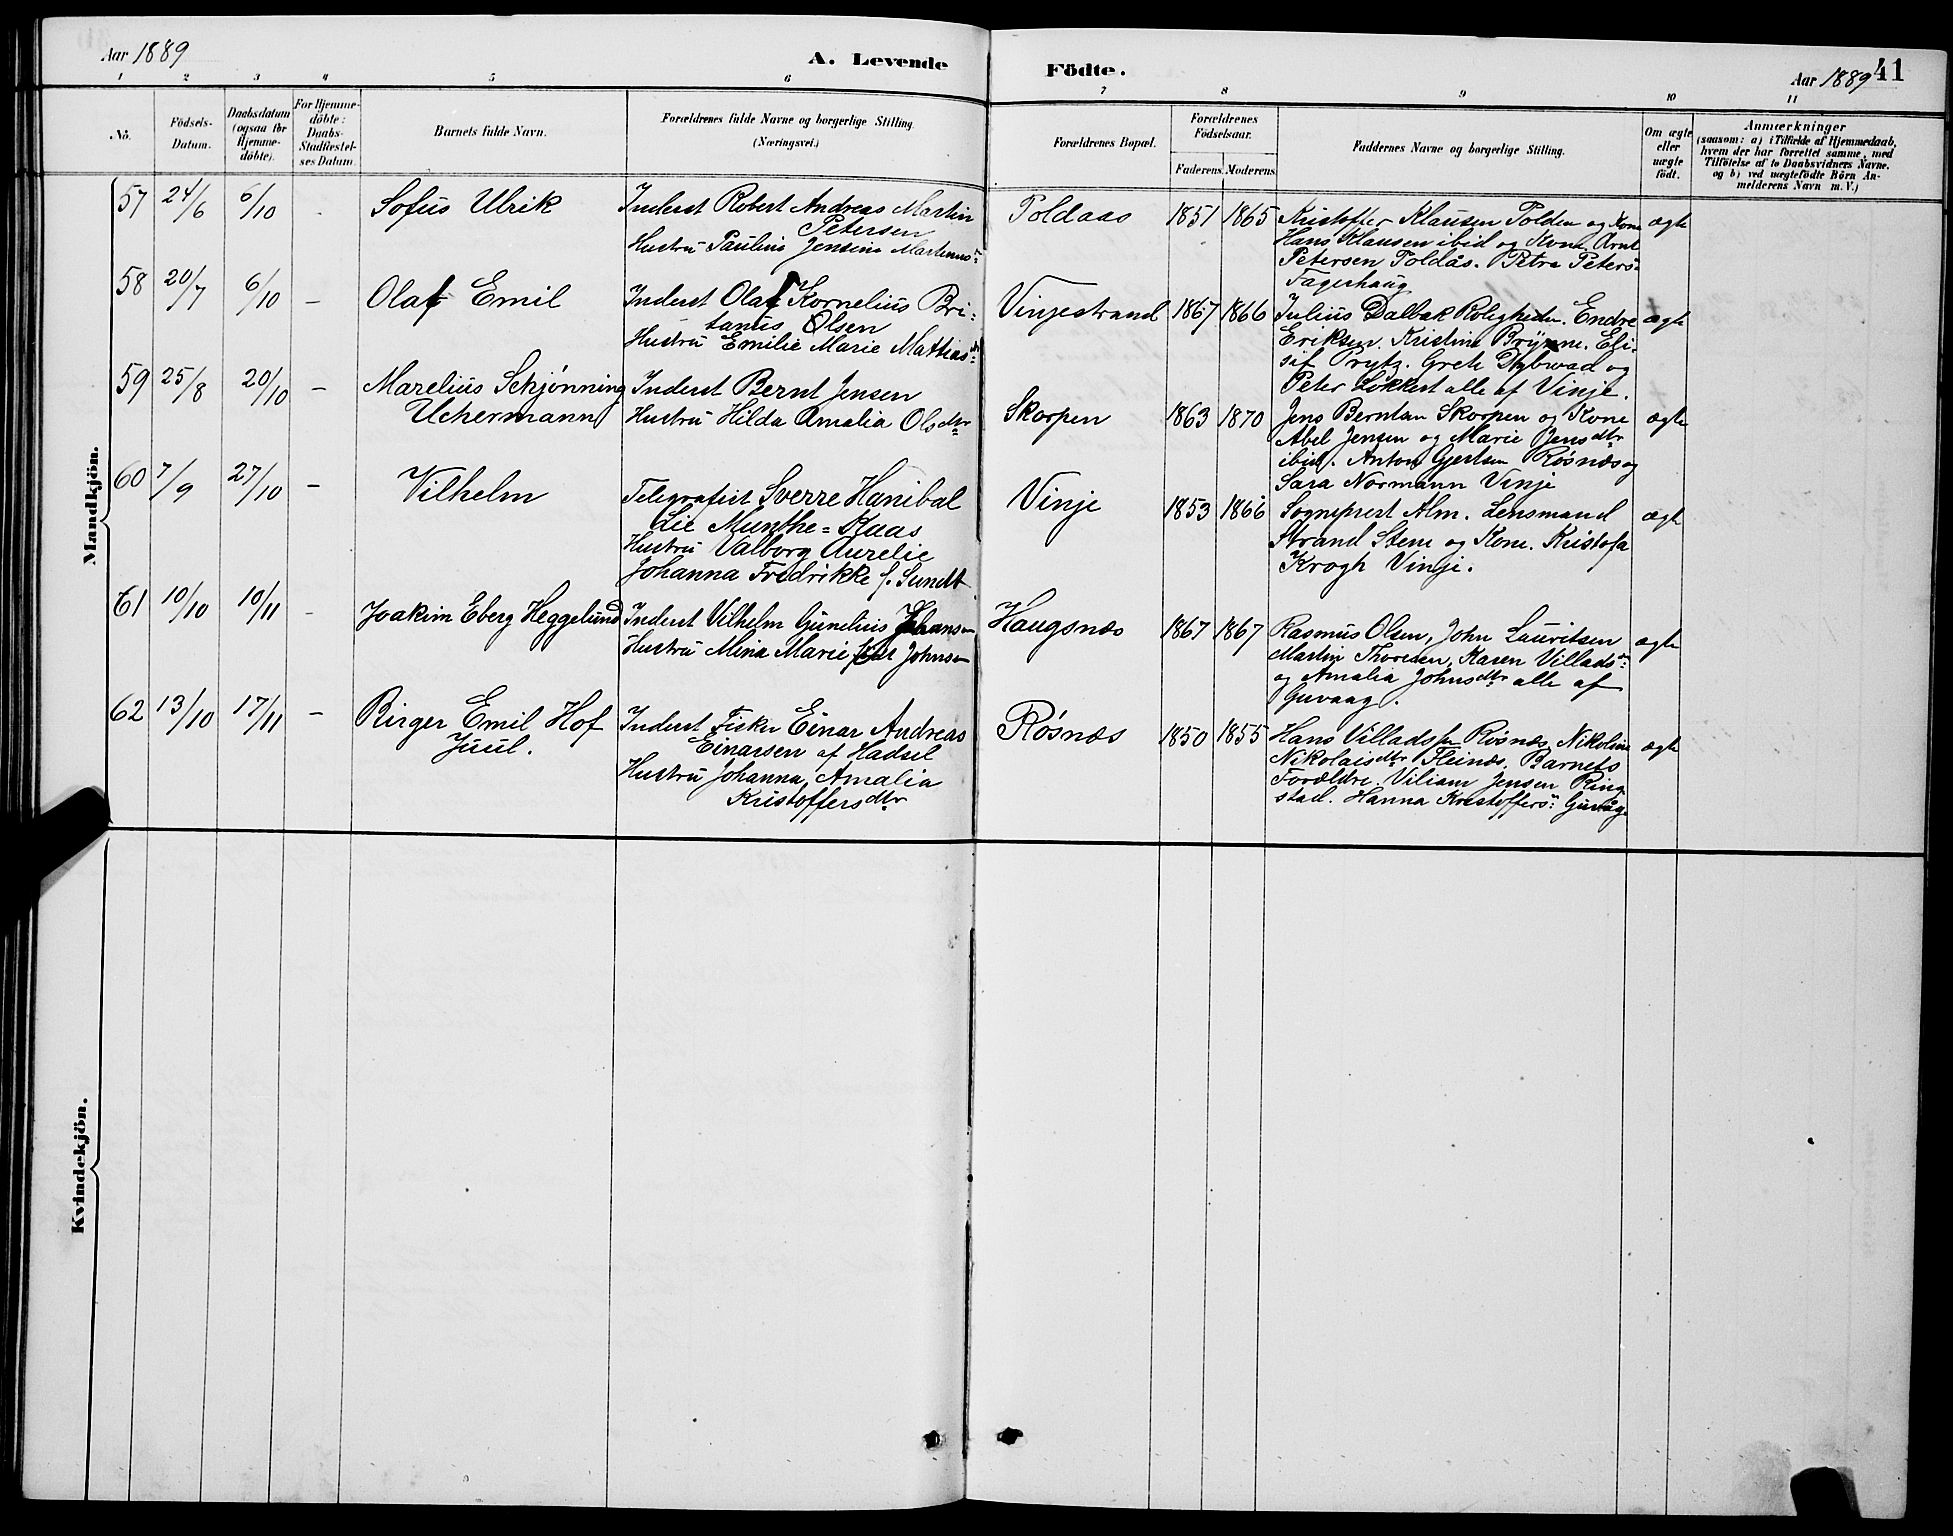 Aar 1889
A. Levende
Födte.
Aar 1889
41
1 2 3 4 5 6 7 8 9 10 11
No.
Födsels-
Datum.
Daabsdatum
(ogsaa for
Hjemme-
döbte).
For Hjemme-
döbte:
Daabs-
Stadfæstel-
ses Datum.
Barnets fulde Navn.
Forældrenes fulde Navne og borgerlige Stilling.
(Næringsvei.)
Forældrenes Bopæl.
Forældrenes
Födselsaar.
Faderens. Moderens.
Faddernes Navne og borgerlige Stilling.
Om ægte
eller
uægte
födt.
Anmærkninger
(saasom: a) i Tilfælde af Hjemmedaab,
hvem der har forrettet samme, med
Tilföielse af to Daabsvidners Navne.
og b) ved uægtefödte Börn An-
melderens Navn m. V.)
Mandkjön.
57 24/6 6/10 - Sofus Ulrik
Inderst Robert Andreas Martin
Petersen
Hustru Pauline Jensine Martinus
Poldaas 1851 1865
Kristoffer Klausen Polden og Kone
Hans Klausen ibid og Kone Arnt
Petersen Poldås. Petra Peters
Fagerhaug
ægte
58 20/7 6/10 - Olaf Emil
Inderst Olaf Kornelius Bri-
tanus Olsen
Hustru Emilie Marie Mattiasdtr
Vinjestrand 1867 1866
Julius Dalbak Roligheden. Endre
Eriksen. Kristine Brynne. Eli-
sif Prytz. Grete Dybwad og
Peter Lökkert alle af Vinje.
ægte
59 25/8 20/10 - Marelius Schjønning
Uchermann
Inderst Bernt Jensen
Hustru Hilda Amalia Olsdtr
Skorpen 1863 1870
Jens Berntsen Skorpen og Kone
Abel Jensen og Marie Jensdtr
ibid. Anton Gjertsen Røsnæs og
Sara Normann Vinje
ægte
60 7/9 27/10 - Vilhelm
Telegrafist Sverre Hanibal
Lie Munthe-Kaas
Hustru Valborg Aurelie
Johanna Fredrikke f. Sundt
Vinje 1853 1866
Sogneprest Alm. Lensmand
Strand Stene og Kone. Kristofa
Krogh Vinje.
ægte
61 10/10 10/11 - Joakim Eberg Heggelund
Inderst Vilhelm Gunelius Johansen
Hustru Mina Marie Johnsen
Haugsnæs 1867 1867
Rasmus Olsen, John Lauritsen
Martin Thoresen, Karen Villads
og Amalia Johnsdtr alle af
Guvaag.
ægte
62 13/10 17/11 - Birger Emil Hof
Juul.
Inderst Fisker Einar Andreas
Einarsen af Hadsel
Hustru Johanna Amalia
Kristoffersdtr
Røsnæs 1850 1855
Hans Villadsen Røsnæs, Nikoline
Nikolaisdtr Fleinæs. Barnets
Forældre. Viliam Jensen Ring-
stad. Hanna Kristoffers Guvåg
ægte
Kvindekjön.